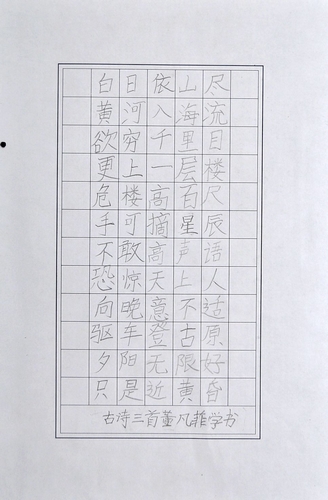 白日依山尽
黄河入海流
欲穷千里目
更上一层楼
危楼高百尺
手可摘星辰
不敢高声语
恐惊天上人
向晚意不适
驱车登古原
夕阳无限好
只是近黄昏
古诗三首董凡菲学书